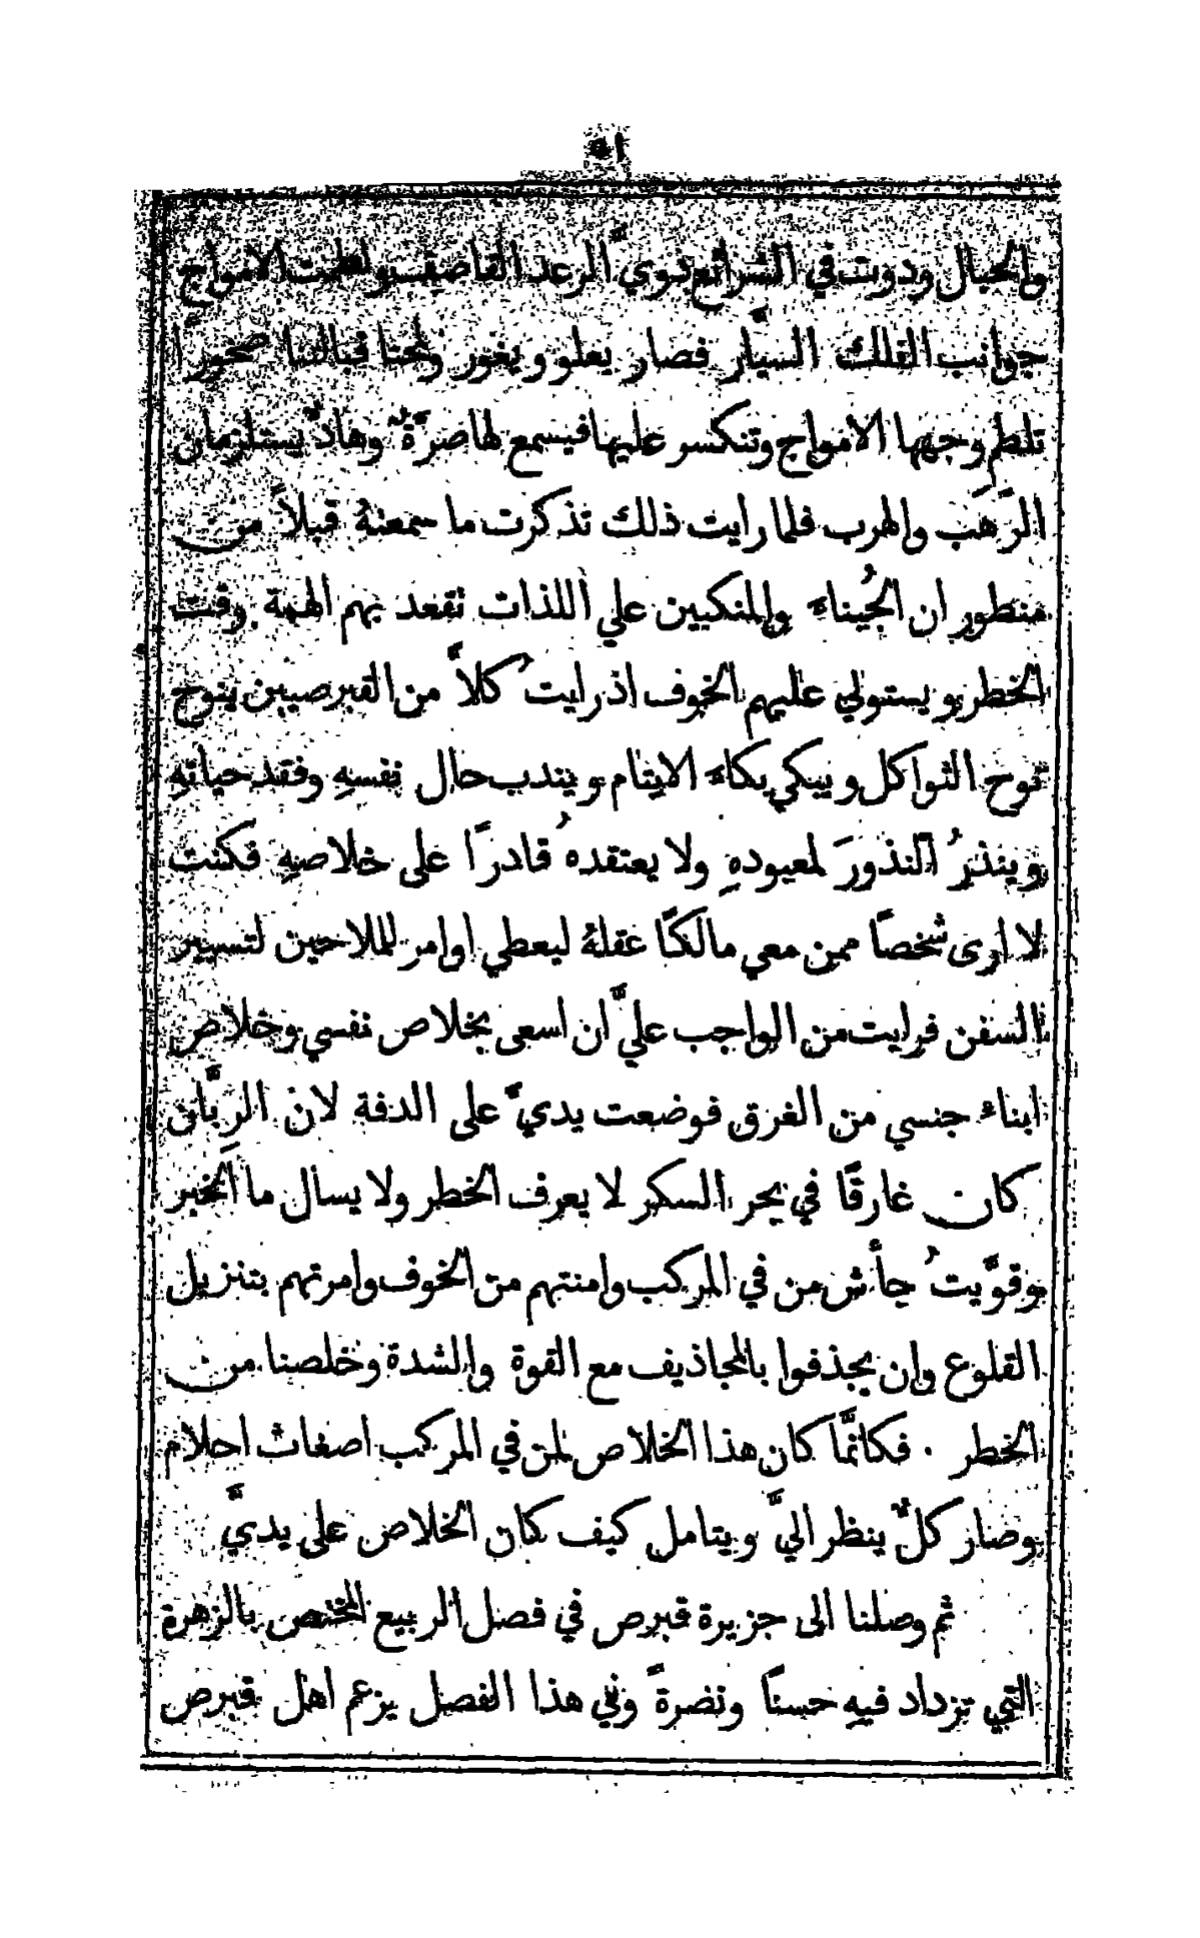 والجبال ودوت في الشرائع دوي الرعد القاصف ولطمت الامواج
جوانب الفلك السيَّار فصار يعلو ويغور ولمحنا قبالتنا صخورًا
تلطم وجهها الامواج وتنكسر عليها فيسمع لها صرَّةٌ وهادٌّ يستلزمان
الرَهَب والهرب فلما رايت ذلك تذكرت ما سمعتهُ قبلاً من
منطور ان الجُبناءَ والمنكبين علي اللذات تقعد بهم الهمة وقت
الخطر ويستولي عليهم الخوف اذ رايتُ كلاًّ من القبرصيين ينوح
نوح الثواكل ويبكي بكاءَ الايتام ويندب حال نفسهِ وفقد حياتهِ
وينذرُ النذورَ لمعبودهِ ولا يعتقدهُ قادرًا على خلاصهِ فكنت
لا ارى شخصًا ممن معي مالكًا عقلهُ ليعطي اوامر للملاحين لتسيير
السفن فرايت من الواجب عليَّ ان اسعى بخلاص نفسي وخلاص
ابناء جنسي من الغرق فوضعت يديَّ على الدفة لان الرِبَّان
كان غارقًا في بحر السكر لا يعرف الخطر ولا يسال ما الخبر
وقوَّيتُ جأش من في المركب وامنتهم من الخوف وامرتهم بتنزيل
القلوع وان يجذفوا بالمجاذيف مع القوة والشدة وخلصنا من
الخطر . فكانمَّا كان هذا الخلاص لمن في المركب اضغاث احلام
وصار كلٌّ ينظر اليَّ ويتامل كيف كان الخلاص على يديَّ
ثم وصلنا الى جزيرة قبرص في فصل الربيع المختص بالزهرة
التي تزداد فيه حسنًا ونضرةً وفي هذا الفصل يزعم اهل قبرص